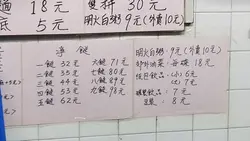 麵 18元
底 5元
復秤 30元
明火白粥9元(外賣10元)
淨餸
一餸 32元
二餸 35元
三餸 44元
四餸 53元
五餸 62元
六餸 71元
七餸 80元
八餸 89元
九餸 98元
明火白粥: 9元(外賣10元)
郊外油菜: 每碟 18元
(小) 6元
(大) 7元
樽裝飲品: 7元
豆漿: 8元